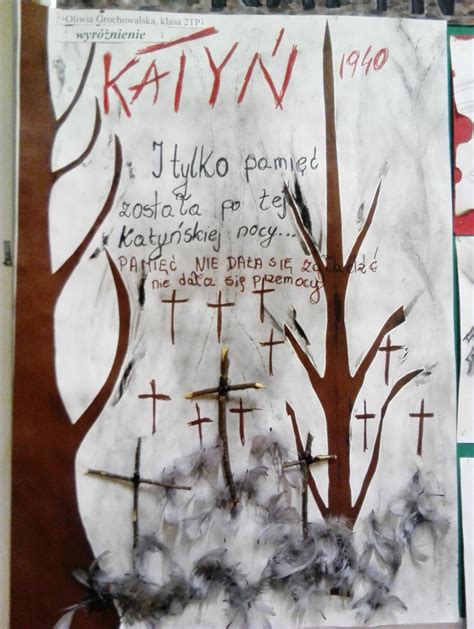 Oliwia Grochowalska, klasa 2TP
wyróżnienie
KATYŃ 1940
I tylko pamięć
została po tej
Katyńskiej nocy...
PAMIĘĆ NIE DAŁA SIĘ ZGŁADZIĆ
nie dała się przemocy